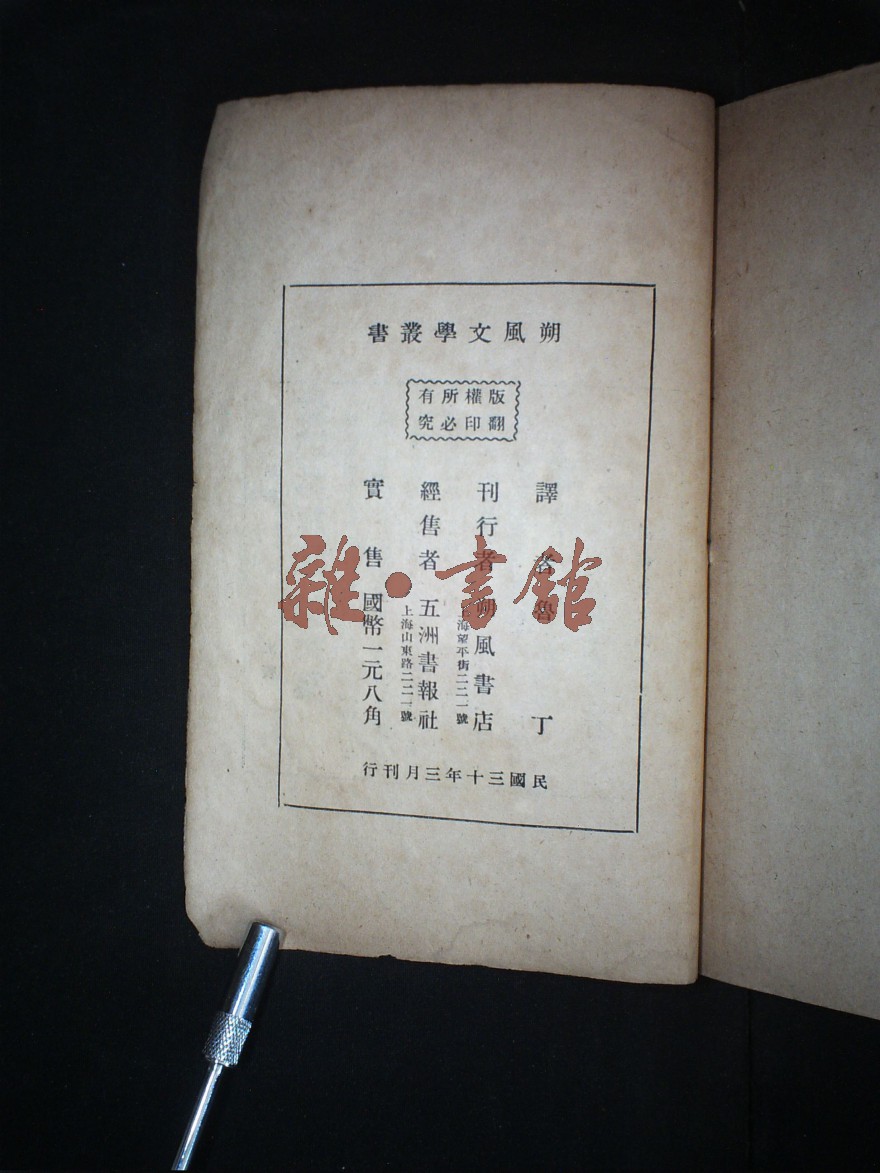 朔風文學叢書
版權所有
翻印必究
譯者魯丁
刊行者朔風書店
上海望平街二二一號
經售者五洲書報社
上海山東路二二一號
實售國幣一元八角
民國三十年三月刊行
雜·書館